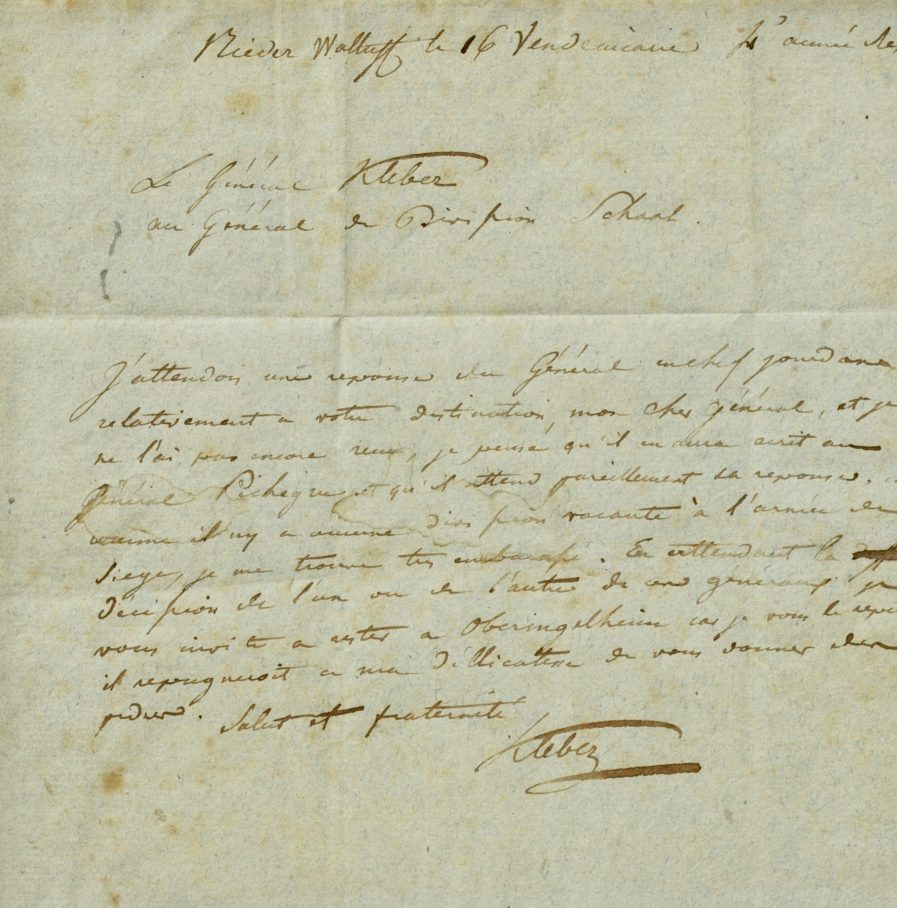 Nieder Walluff le 16 Vendemiaire 4e année Re
Le Général Kleber
au Général de Division Schaal.
J'attendois une reponse du Général en chef jourdane
relativement a votre destination, mon cher général, et je
ne l'ai pas encore reçu, je pense qu'il en aura ecrit au
Général Pichegru et qu'il attend pareillement sa reponse.
comme il ny a aucune division vacante à l'armée de
siege, je me trouve tres embarassé. En attendant la
decision de l'un ou de l'autre de ces généraux je
vous invite a rester a Oberingelheim car je vous le repete
il repugneroit a ma déllicatesse de vous donner des
ordres. Salut et fraternité
Kleber